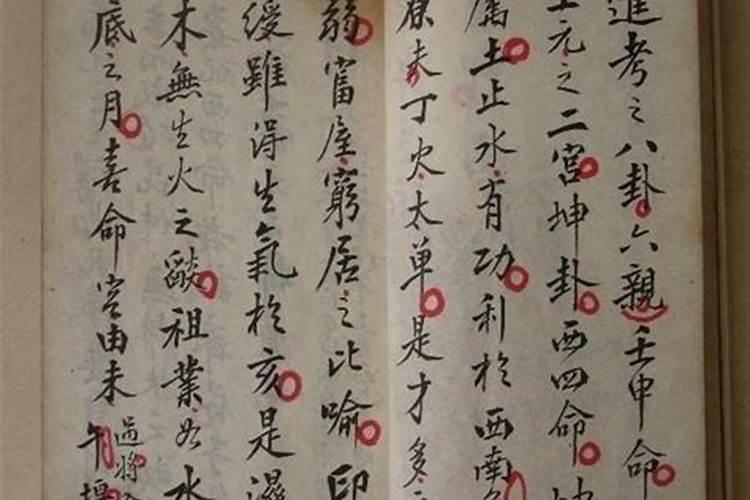 進考之八卦六親壬申命
元之二宮坤卦西四命坤
属土止水有功利於西南
未丁火太单是才多
弱富屋窮居之比喻印
綬雖得生氣於亥是濕
木無生火之燄祖業如水
底之月喜命宮由未午
過將